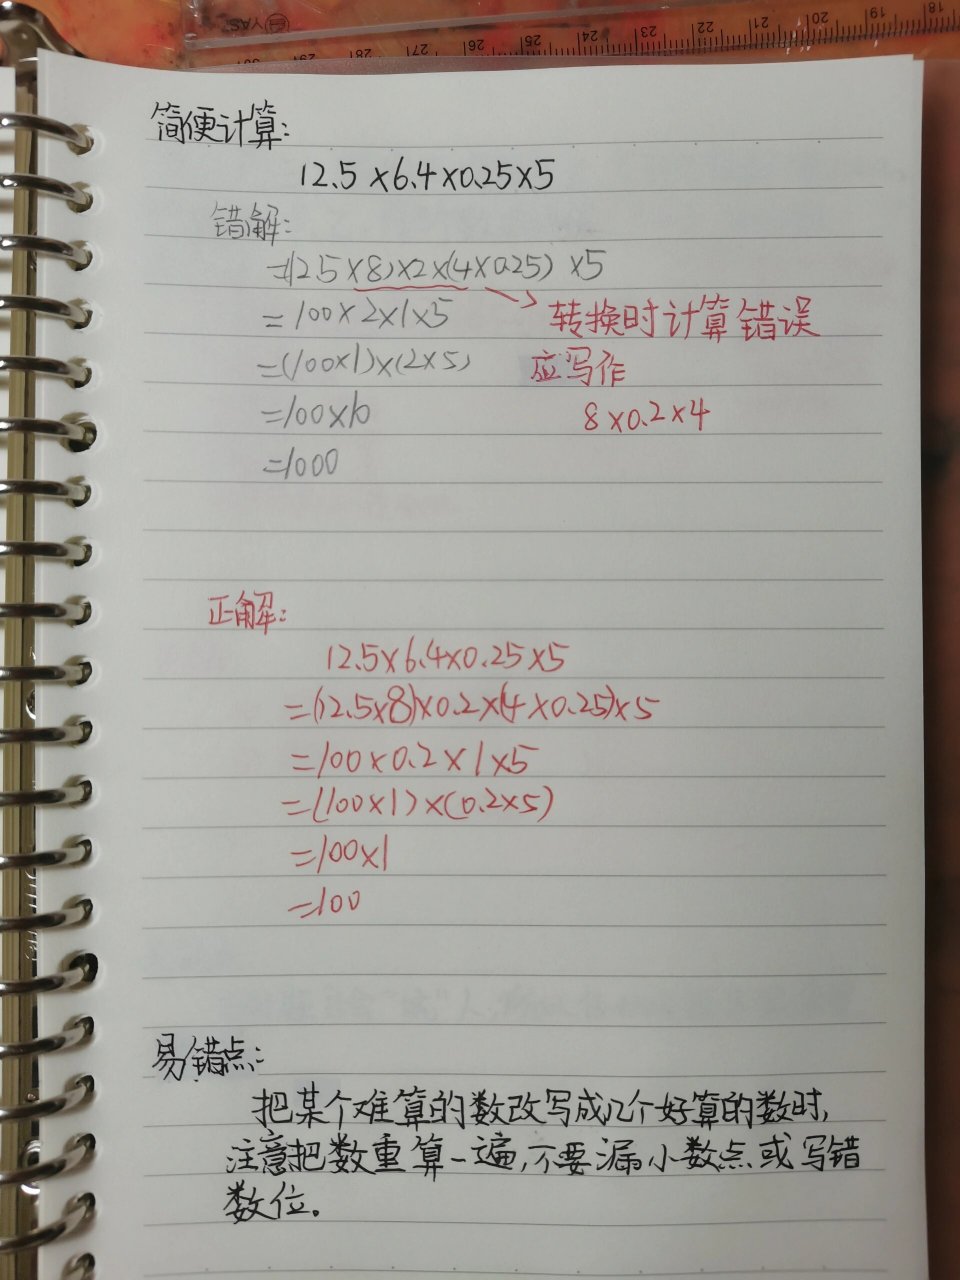 简便计算:
12.5×6.4×0.25×5
错解:
=(12.5×8)×2×(4×0.25)×5
=100×2×1×5
→转换时计算错误
=(100×1)×(2×5)
应写作
=100×10
8×0.2×4
=1000
正解:
12.5×6.4×0.25×5
=(12.5×8)×0.2×(4×0.25)×5
=100×0.2×1×5
=(100×1)×(0.2×5)
=100×1
=100
易错点:
把某个难算的数改写成几个好算的数时,
注意把数重算一遍,不要漏小数点或写错
数位。